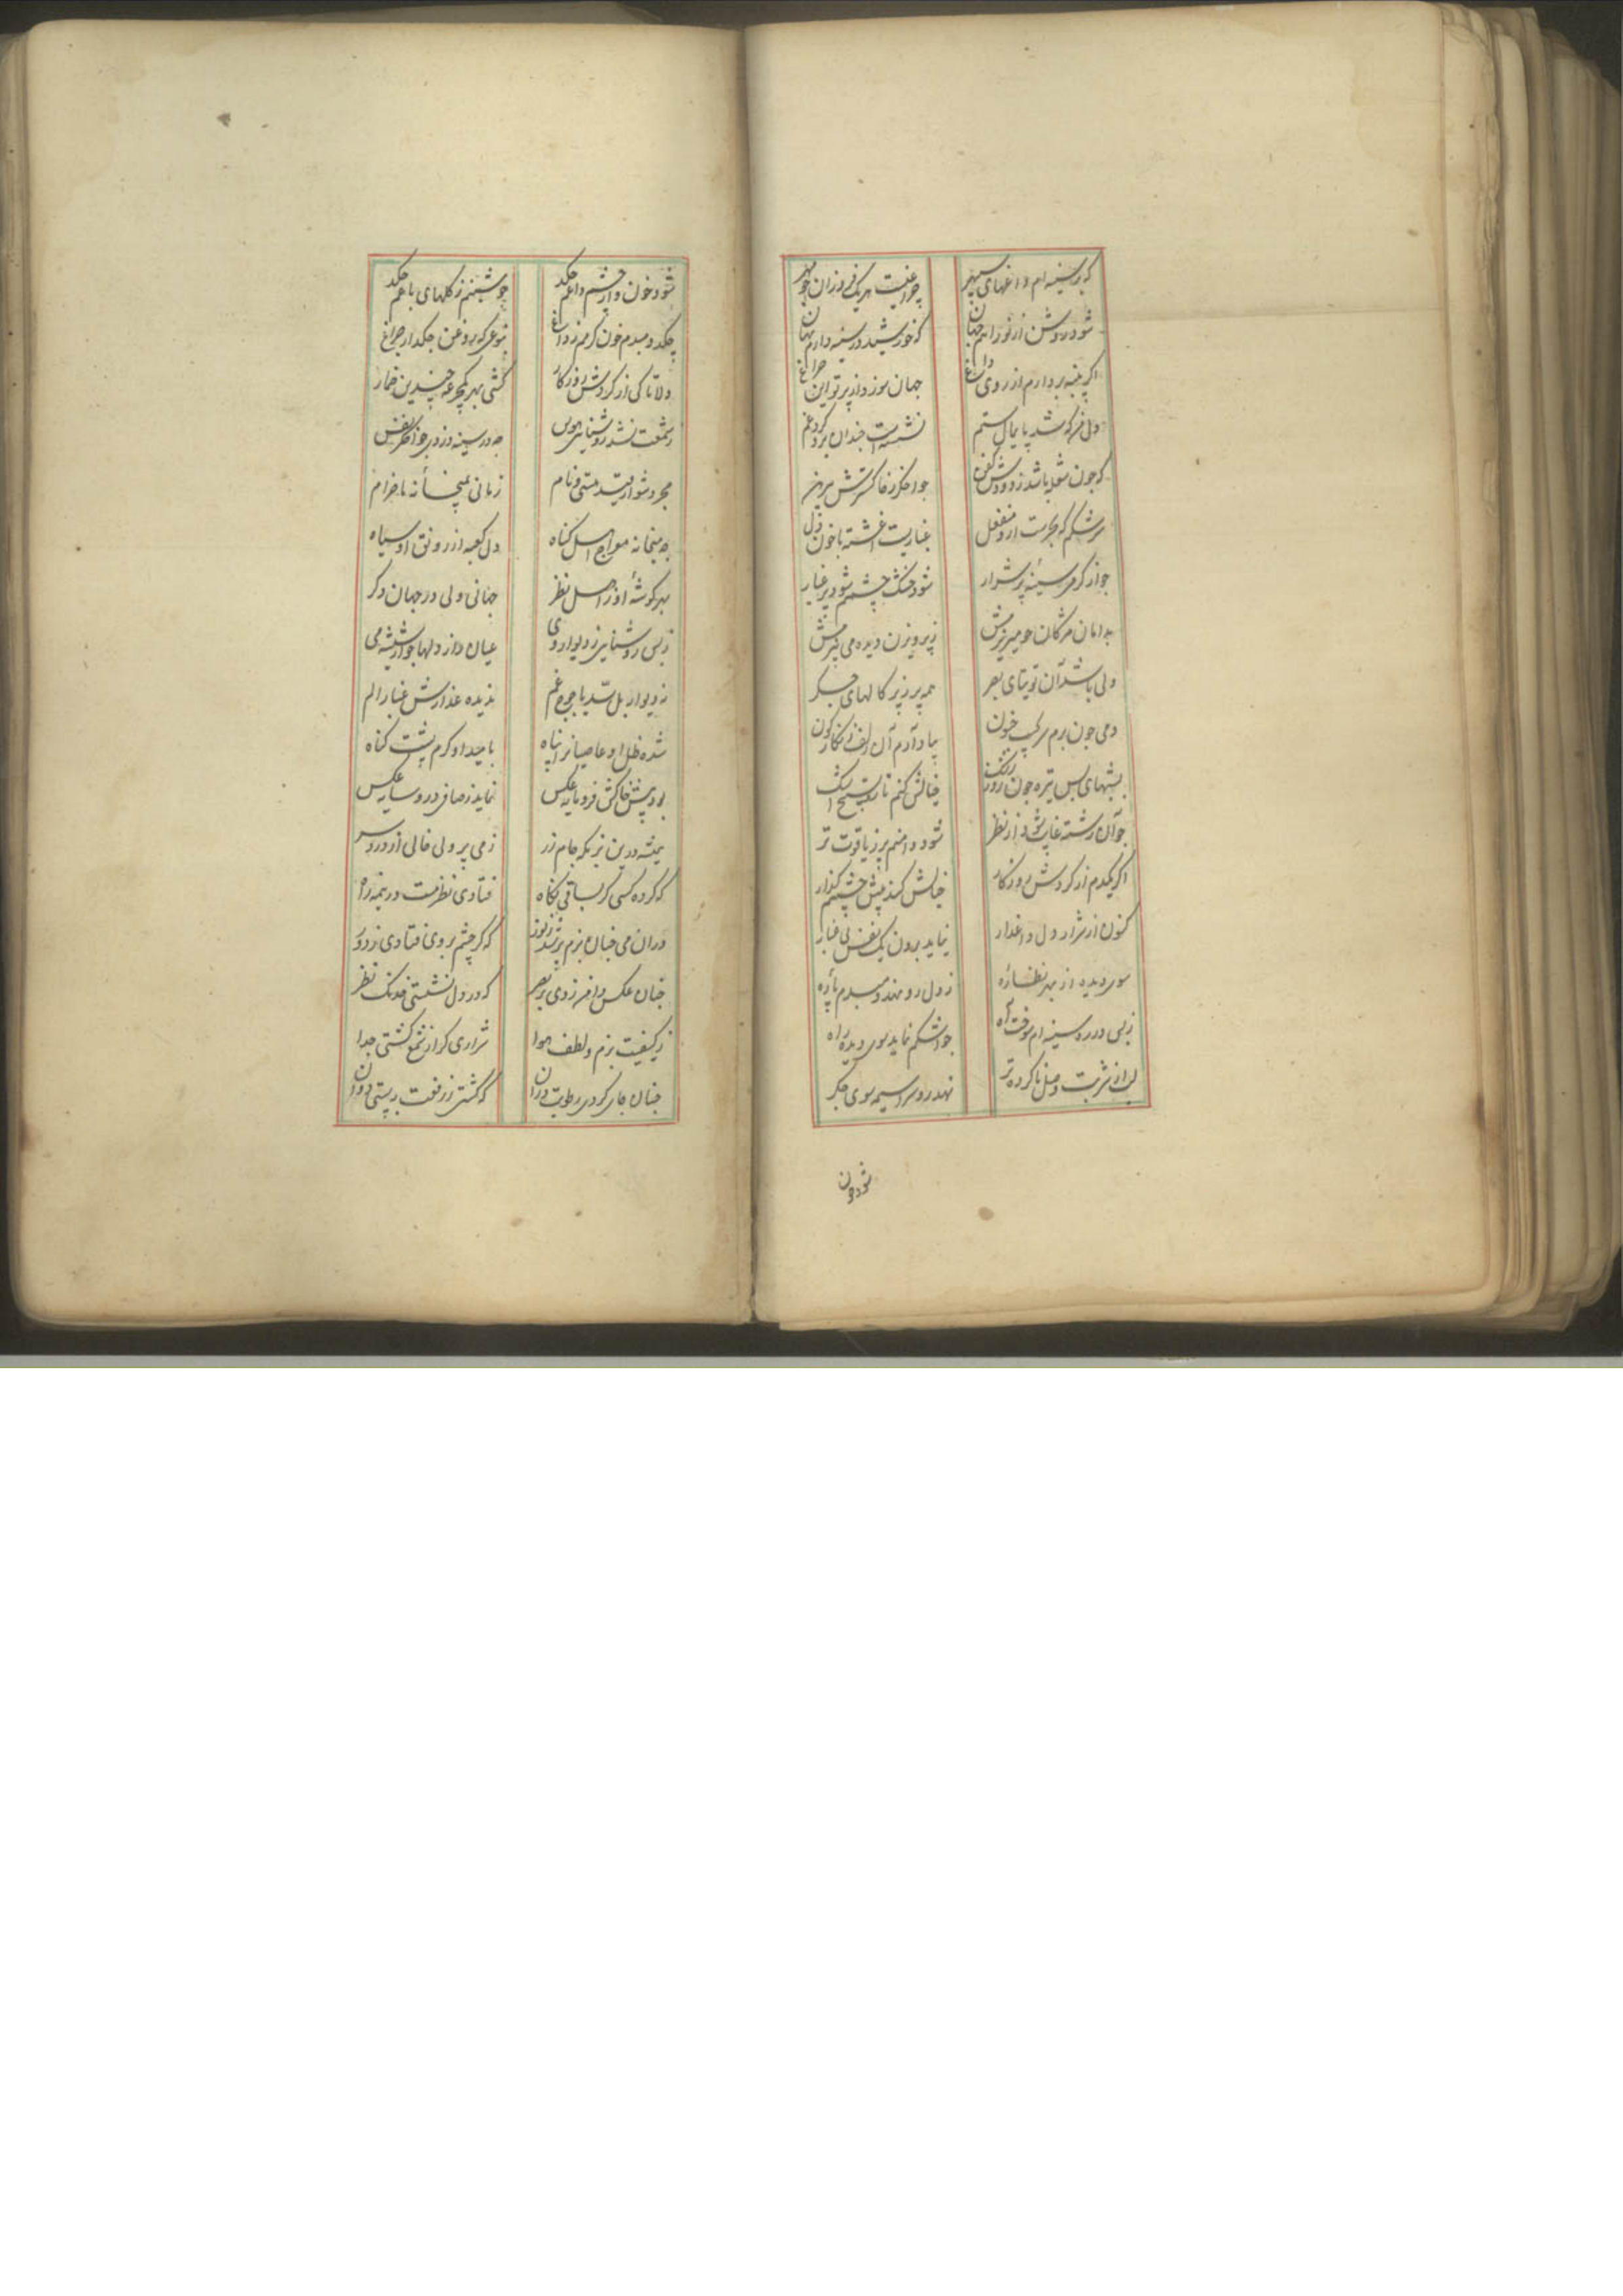 که بر سینه ام داغهای سپهر چراغیست هر یک فروزان چو مهر
شود روشن از نور راتم جهان که خورشید در سینه دارم نهان
اگر پنبه بردارم از روی داغ جهان سوزد از پرتو این چراغ
دل من که شد پایمال ستم نشسته است چندان برو گرد غم
که چون شعله باشد ز دودش کفن چو اخگر ز خاکسترش پیرهن
سرشکم که بحریست ازو منفعل غباریست اغشته با خون دل
چو از گرمی سینه پر شرار شود خشک چشمم شود پر غبار
بدامان مژگان چو میریزمش ز پرویزن دیده می بیزمش
ولی باشد آن توتیای بصر همه پر ز پرکالهای جگر
دمی چون برم سر بجیب خون بیاد آرم آن زلف زنگارگون
بشبهای بس تیره چون روز زنگ خیالش کنم تار تسبیح اشک
چو آن رشته غایب شود از نظر شود دامنم پر ز یاقوت تر
اگر یکدم از گردش روزگار خیالش کند پیش چشمم گذار
کنون از شرار دل داغدار نیاید برون یک نفس بی غبار
سوی دیده از بهر نظاره ز دل رو نهد هر دم پاره
ز بس در ره سینه ام سوخت آه چو اشکم نماید سوی دیده راه
لب از شربت وصل ناکرده تر نهد رو سراسیمه سوی جگر
شود خون
شود خون و از چشم داغم چکد چو شبنم ز گلهای باغم چکد
چکد دمبدم خون گرمم ز داغ بنوعی که روغن چکد از چراغ
دلا تا کی از گردش روزگار کشی بهر یک جرعه چندین خمار
ز شمعت نشد روشنایی هوس چه در سینه دزدی چو اخگر نفس
مجرد شو از قید هستی و نام زمانی بمیخانه ما خرام
چه میخانه معراج اهل گناه دل کعبه از رونق او سیاه
بهر گوشه او ز اهل نظر جهانی ولی در جهان دگر
ز بس روشنایی ز دیوار وی عیان راز دلها چو از شیشه می
ز دیوار بل سد یاجوج غم ندیده عذارش غبار الم
شده ظل او عاصیانرا پناه بامید او گرم پشت گناه
بود پیش خاکش فرومایه عکس نماید ز صافی درو سایه عکس
همیشه درین بزمگه جام زر ز می پر ولی خالی از دردسر
که کرده کسی گر بساقی نگاه فتادی نظر مست در نیمه راه
دران می چنان بزم پر شد ز نور که گر چشم بر وی فتادی ز دور
چنان عکس دامن زدی بر بصر که در دل نشستی خدنک نظر
ز کیفیت بزم و لطف هوا شراری که از شمع گشتی جدا
چنان جای کردی رطوبت دران که گشتی ز رفعت به پستی روان